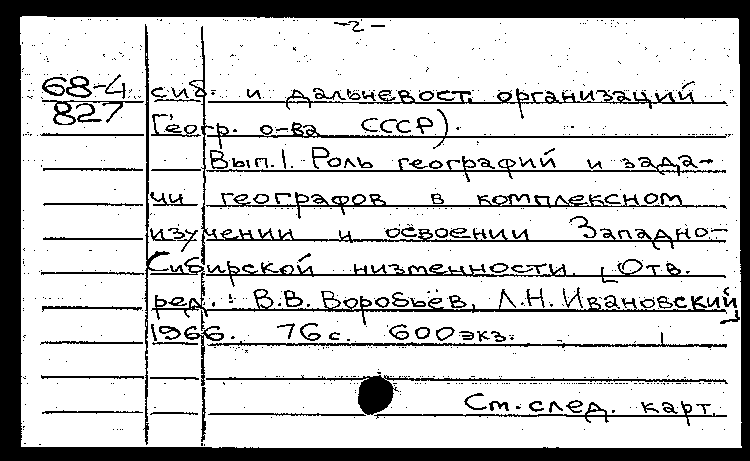 -2-
68-4 сиб. и дальневост. организаций
827 Геогр. о-ва СССР).
Вып.1. Роль географий и зада-
чи географов в комплексном
изучении и освоении Западно-
Сибирской низменности. [Отв.
ред.: В.В. Воробьёв, Л.Н. Ивановский]
1966. 76 с. 600 экз.
См. след. карт.